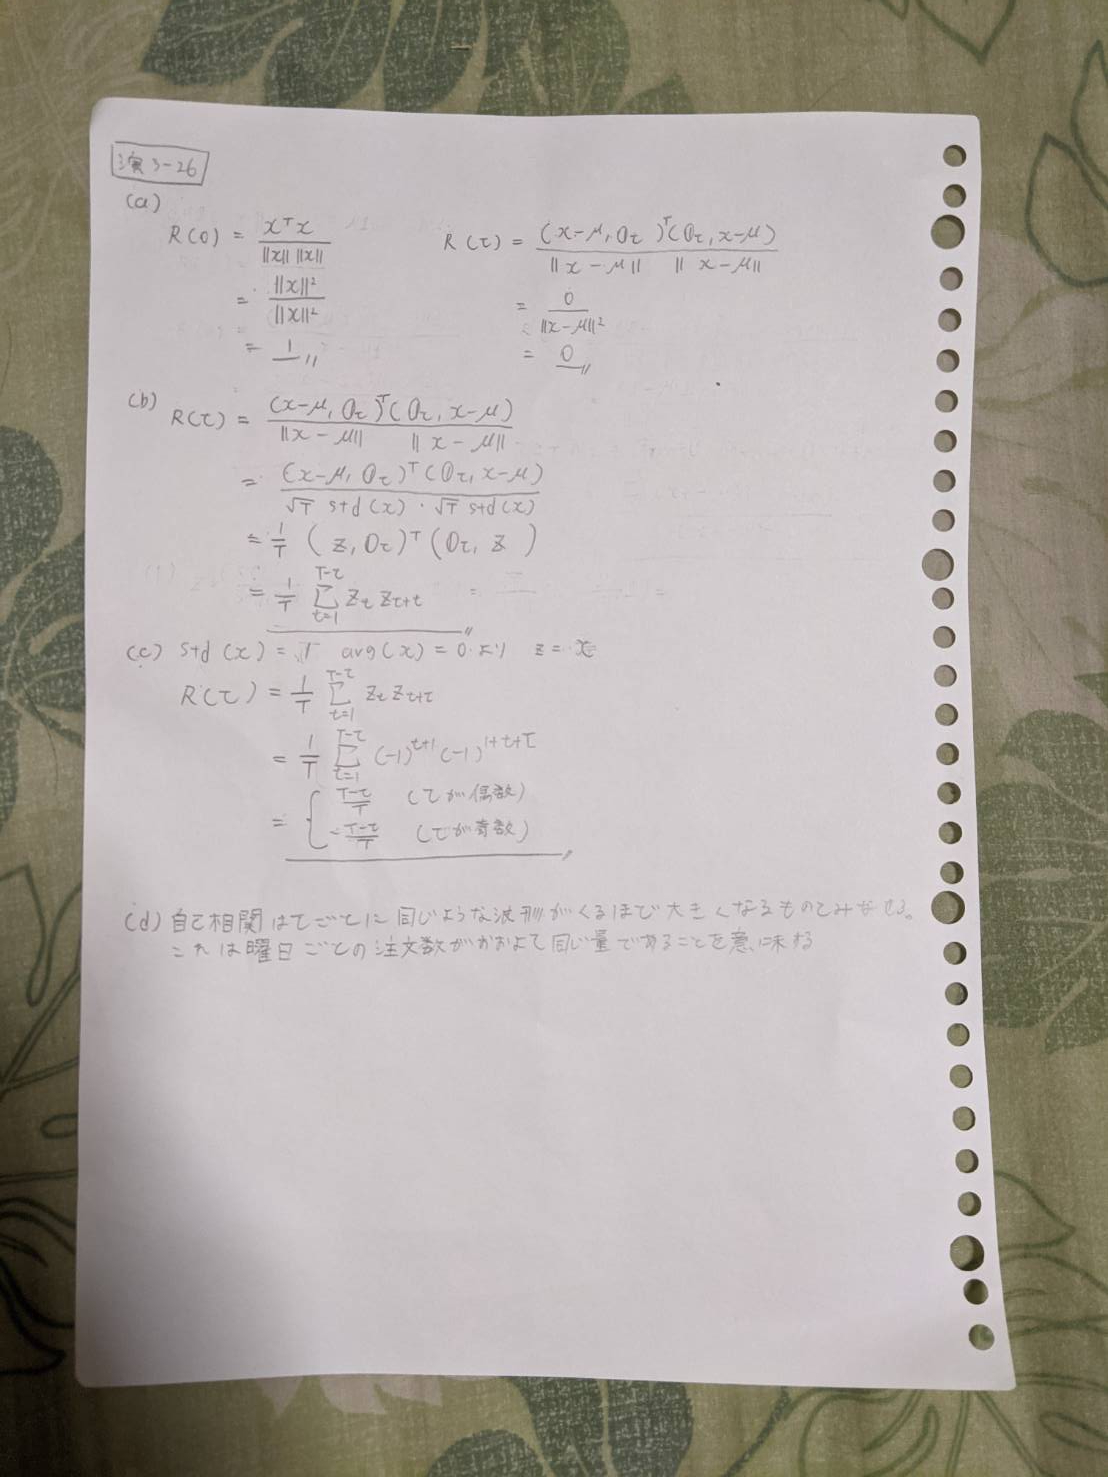 演3-26
(a)
R(0) = xᵀx / ‖x‖ ‖x‖
= ‖x‖² / ‖x‖²
= 1 〃
R(τ) = (x-μ, 0τ)ᵀ(0τ, x-μ) / ‖x-μ‖ ‖x-μ‖
= 0 / ‖x-μ‖²
= 0 〃
(b) R(τ) = (x-μ, 0τ)ᵀ(0τ, x-μ) / ‖x-μ‖ ‖x-μ‖
= (x-μ, 0τ)ᵀ(0τ, x-μ) / √T std(x)・√T std(x)
= 1/T (z, 0τ)ᵀ(0τ, z)
= 1/T Σ_{t=1}^{T-τ} z_t z_{τ+t} 〃
(c) std(x) = 1 avg(x) = 0 より z = x
R(τ) = 1/T Σ_{t=1}^{T-τ} z_t z_{t+τ}
= 1/T Σ_{t=1}^{T-τ} (-1)^{t+1} (-1)^{1+t+τ}
= { T-τ/T (τが偶数)
-T-τ/T (τが奇数)
(d) 自己相関はτごとに同じような波形がくるほど大きくなるものとみなせる。
これは曜日ごとの注文数がおおよそ同じ量であることを意味する